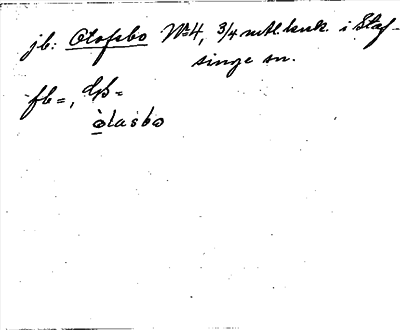 jb: Olofsbo No 4, 3/4 mtl. krsk. i Staf-
singe sn.
fb =, dß =
òlasbo